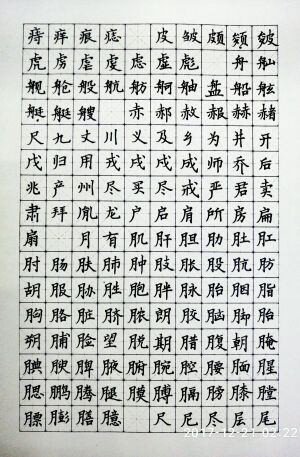 痔 痒 痕 痣 皮 皱 颇 颓 皴
虎 虏 虐 虔 虑 虚 彪 舟 舢
舰 舱 般 航 舫 舸 舳 盘 船 舷
艇 艇 艘 赤 郝 赦 赧 赫 赭
尺 九 丈 川 义 及 乡 为 井 开
戊 归 用 戎 戌 戍 成 师 乔 后
兆 产 州 尽 买 尽 戒 严 君 卖
肃 拜 胤 龙 户 启 肩 所 房 扁
扇 月 有 肌 肝 胆 肋 肚 肛
肘 肠 肤 肺 肿 胶 胀 股 肮 肪
胡 服 胁 胜 胞 胖 脉 胎 胭 脂
胸 胳 脏 脐 脓 朗 胶 脑 脚 胎
朔 脯 脸 望 脱 期 腊 腹 朝 腌
腆 腴 脾 腋 腑 腕 腔 腰 腼 腥
腮 鹏 腾 腿 膜 膊 膈 膀 膝 膛
膘 膨 膳 臆 尺 尼 尽 层 尾
2017-12-21 02:22